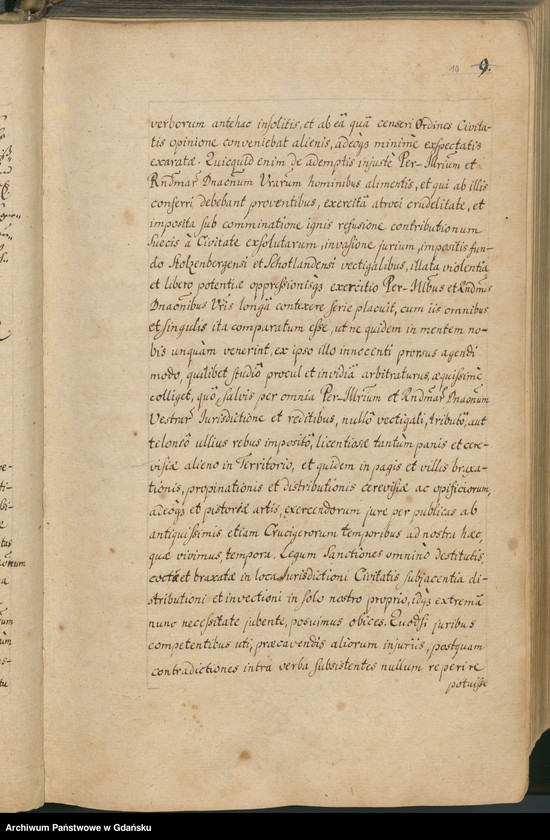 10 9.
verborum antehac insolitis, et ab eâ quâ censeri Ordines Civita-
tis opinione conveniebat alienis, adeoqꝫ minimè exspectatis
exaratæ. Quicquid enim de ademptis injustè Per-Illrium et
Rndmar̃ Dnaonum Vrarum hominibus alimentis, et qui ab illis
conferri debebant proventibus, exercitâ atroci crudelitate, et
imposita sub comminatione ignis refusione contributionum
Suecis à Civitate exsolutarum, invasione jurium, impositis fun-
do Stolzenbergensi et Schotlandensi vectigalibus, illata violentiâ
et libero potentiæ oppressionisqꝫ exercitio Per-Illbus et Rndmis
Dnaonibus Vris longâ contexere serie placuit, cum iis omnibus
et singulis ita comparatum esse, ut ne quidem in mentem no-
bis unquam venerint, ex ipso illo innocenti prorsus agendi
modo, quilibet studiô procul et invidiâ arbitraturus, æquissimè
colliget, quô salvis per omnia Per-Illrium et Rndmar̃ Dnaonum
Vestrar̃ Jurisdictione et reditibus, nullô vectigali, tributô, aut
teloneô ullius rebus impositô, licentiosæ tantùm panis et cere-
visiæ alieno in Territorio, et quidem in pagis et villis braxa-
tionis, propinationis et distributionis cerevisiæ ac opificiorum,
adeoqꝫ et pistoriæ artis, exercendorum jure per publicas ab
antiquissimis etiam Crucigerorum temporibus ad nostra hæc,
quæ vivimus, tempora, Legum Sanctiones omninò destitutis,
coctæ et braxatæ in loca Jurisdictioni Civitatis subjacentia di-
stributioni et invectioni in solo nostro proprio, idqꝫ extremâ
nunc necessitate jubente, posuimus obices. Quodsi juribus
competentibus uti, præcavendis aliorum injuriis, postquam
contradictiones intra verba subsistentes nullum reperire
potuisse
Archiwum Państwowe w Gdańsku